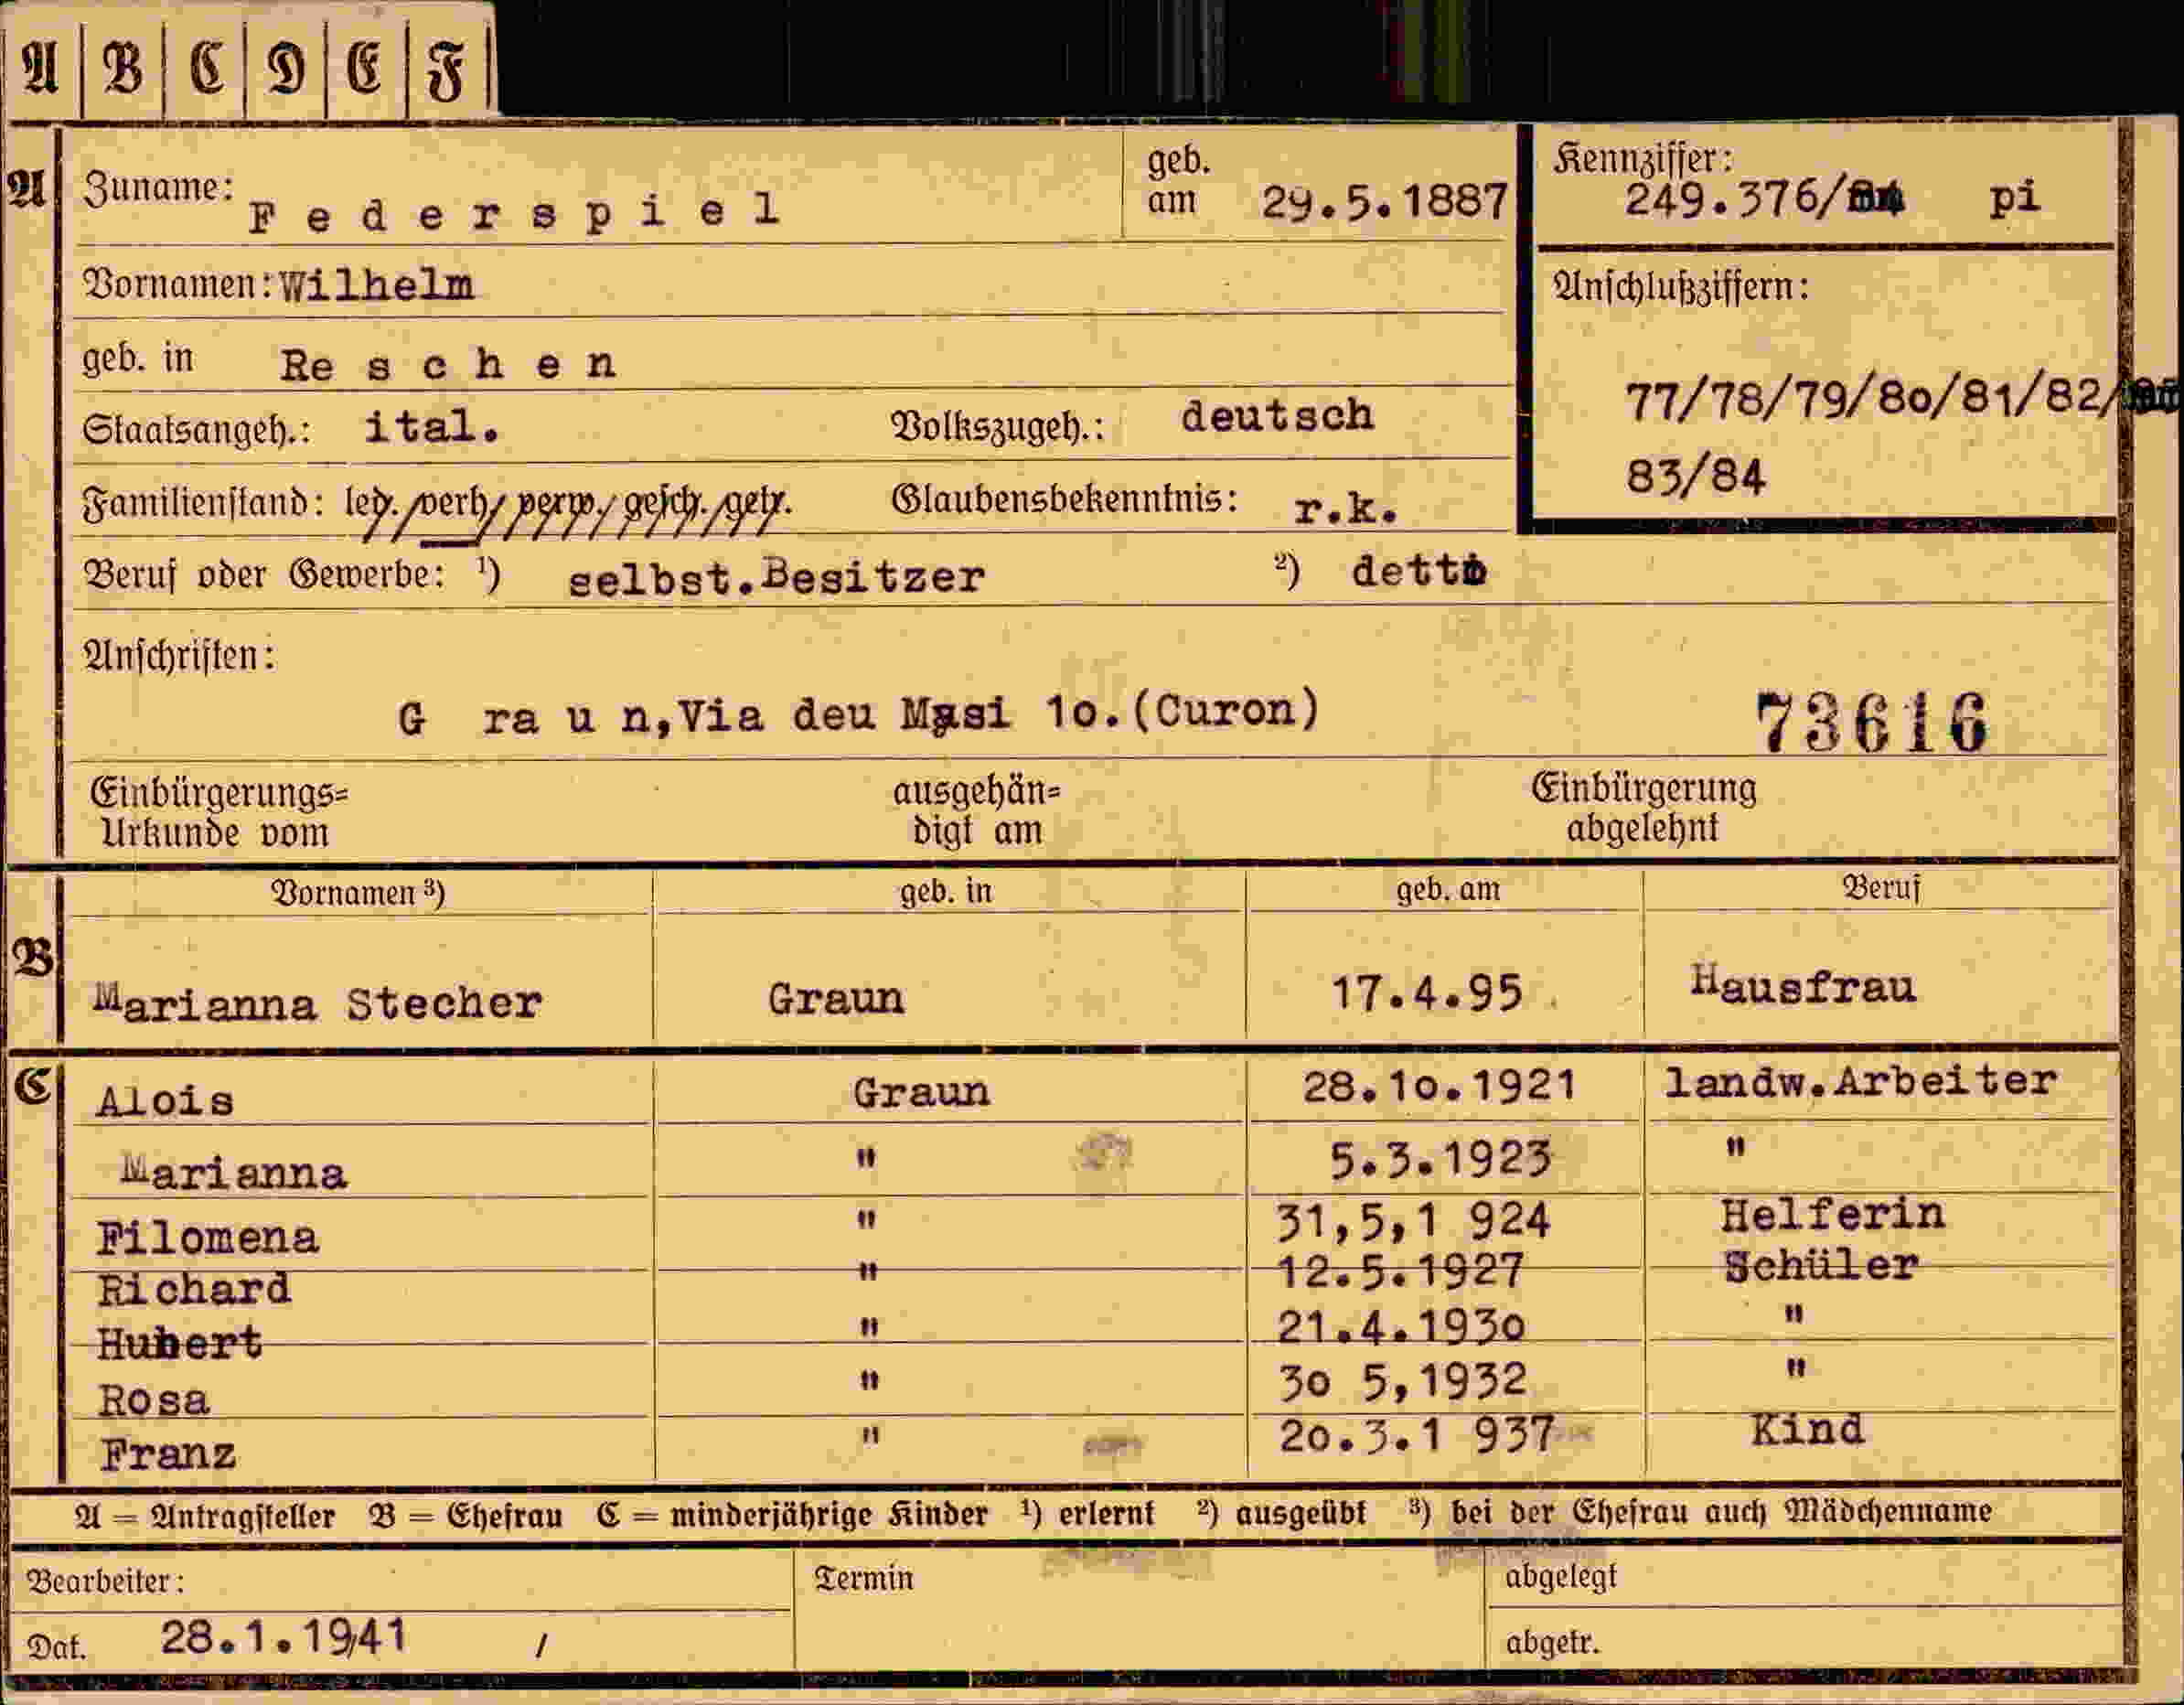 A B C D E F
A Zuname: Federspiel geb. am 29.5.1887
Kennziffer: 249.376/ pi
Vornamen: Wilhelm
Anschlußziffern:
geb. in Reschen
77/78/79/80/81/82/
Staatsangeh.: ital. Volkszugeh.: deutsch
83/84
Familienstand: led./verh/verw./gesch./getr. Glaubensbekenntnis: r.k.
Beruf oder Gewerbe: ¹) selbst.Besitzer ²) detto
Anschriften:
Graun,Via deu Masi 10.(Curon) 73616
Einbürgerungs= ausgehän= Einbürgerung
Urkunde vom digt am abgelehnt
Vornamen ³) geb. in geb. am Beruf
B Marianna Stecher Graun 17.4.95 Hausfrau
C Alois Graun 28.10.1921 landw.Arbeiter
Marianna " 5.3.1923 "
Filomena " 31,5,1 924 Helferin
Richard " 12.5.1927 Schüler
Hubert " 21.4.1930 "
Rosa " 30 5,1932 "
Franz " 20.3.1 937 Kind
A = Antragsteller B = Ehefrau C = minderjährige Kinder ¹) erlernt ²) ausgeübt ³) bei der Ehefrau auch Mädchenname
Bearbeiter: Termin abgelegt
Dat. 28.1.1941 / abgetr.